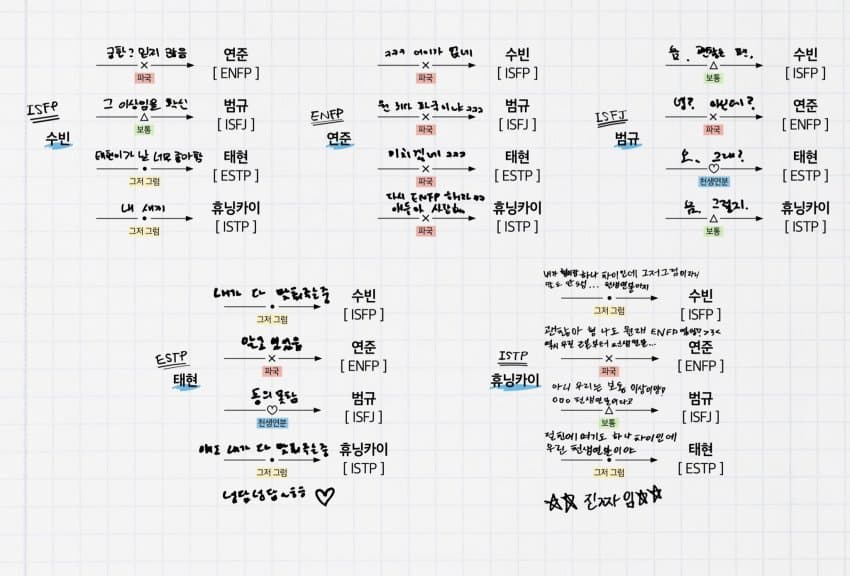 ISFP
수빈
궁합? 믿지 않음
파국
연준
[ ENFP ]
그 이상임을 확신
보통
범규
[ ISFJ ]
태현이가 날 너무 좋아함
그저 그럼
태현
[ ESTP ]
내 새끼
그저 그럼
휴닝카이
[ ISTP ]
ENFP
연준
ㅋㅋㅋ 어이가 없네
파국
수빈
[ ISFP ]
뭔 파국이냐 ㅋㅋㅋ
파국
범규
[ ISFJ ]
미치겠네 ㅋㅋㅋ
파국
태현
[ ESTP ]
다시 ENFP 해라
얘들아 사랑해
파국
휴닝카이
[ ISTP ]
ISFJ
범규
음. 괜찮은 편.
보통
수빈
[ ISFP ]
넹? 아신데?
파국
연준
[ ENFP ]
오. 그래?
천생연분
태현
[ ESTP ]
음. 그렇지.
보통
휴닝카이
[ ISTP ]
ESTP
태현
내가 다 맞춰주는중
그저 그럼
수빈
[ ISFP ]
알고 있었음
파국
연준
[ ENFP ]
동의 못함
천생연분
범규
[ ISFJ ]
얘도 내가 다 맞춰주는중
그저 그럼
휴닝카이
[ ISTP ]
넝담넝담~ㅎㅎ ♡
ISTP
휴닝카이
하나 차이인데 그저그럼이라니
말도 안 돼... 천생연분이지
그저 그럼
수빈
[ ISFP ]
괜찮아 형 나도 원래 ENFP >3<
역시 우린 천생연분...
파국
연준
[ ENFP ]
아니 우리는 보통 이상이야!
천생연분이라고
보통
범규
[ ISFJ ]
절친에 여기도 하나 차이인데
우린 천생연분이야
그저 그럼
태현
[ ESTP ]
☆☆ 진짜임 ☆☆